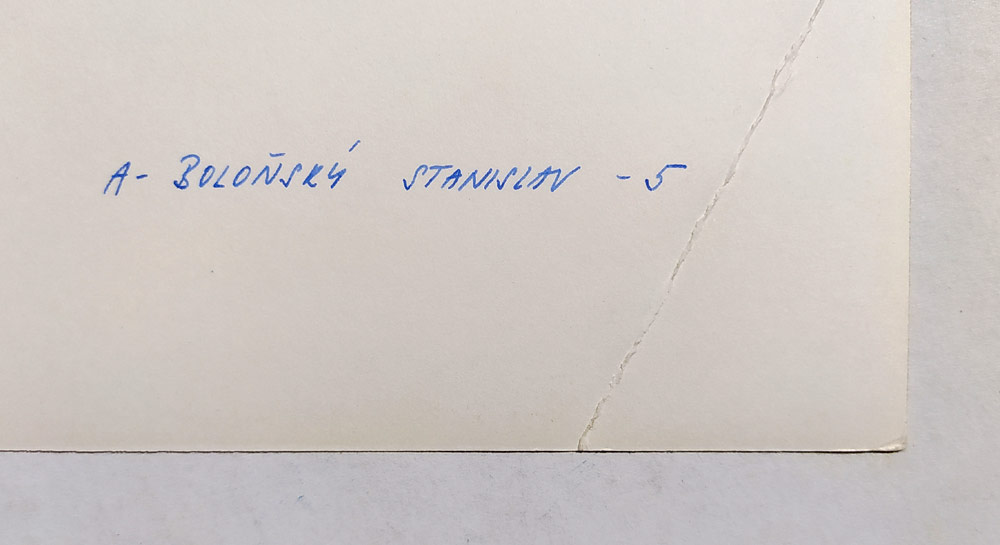 A- BOLOŇSKÝ STANISLAV - 5